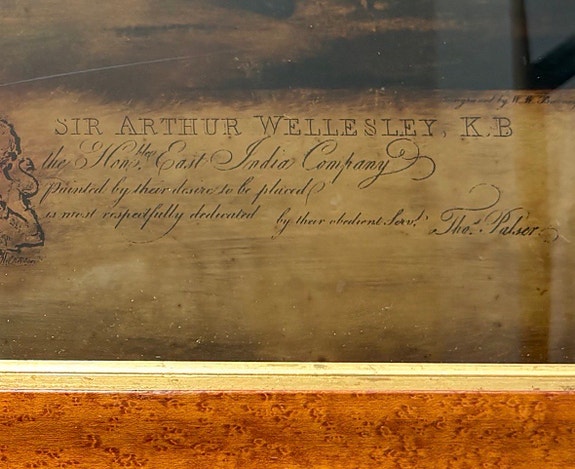 engraved by W. M.
SIR ARTHUR WELLESLEY, K.B
the Hon.ble East India Company
Painted by their desire to be placed
is most respectfully dedicated by their obedient Serv.t Tho.s Palser